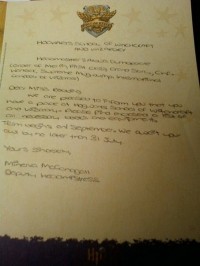 HOGWARTS SCHOOL OF WITCHCRAFT
AND WIZARDRY
Headmaster: Albus Dumbledore
(Order of Merlin, First Class, Grand Sorc.,
Warlock, Supreme Mugwump, International
of Wizards)
Dear Miss
We are pleased to inform you that you
have a place at Hogwarts School of Witchcraft
and Wizardry. Please find enclosed a list
of necessary books and equipment.
Term begins on 1st September. We await your
owl by no later than 31 July.
Yours Sincerely,
McGonagall
Deputy Headmistress